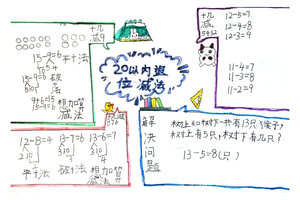 20以内退
位减法
15-9=6
平十法
破十法
9+6=15
15-9=6
想加算减
十几减9
12-5=7
12-4=8
12-3=9
11-4=7
11-3=8
11-2=9
12-8=4
13-7=6
13-6=7
平十法
破十法
想加算减
解决问题
树上和树下一共有13只猴子,
树上有5只,树下有几只?
13-5=8(只)